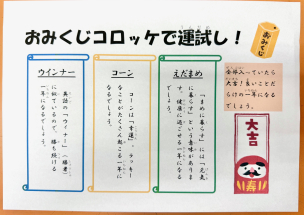 おみくじコロッケで運試し！
おみくじ
全部入っていたら
大吉！良いことだ
らけの一年になる
でしょう。
えだまめ
「まめに暮らす」には「元気
に暮らす」という意味がありま
す。健康に過ごせる一年になる
でしょう。
コーン
コーンは「幸運」。ラッキー
なことがたくさん起こる一年に
なるでしょう。
ウインナー
英語の「ウィナー」（勝者）
に似ているので、勝ち続ける
一年になるでしょう。
大吉
寿